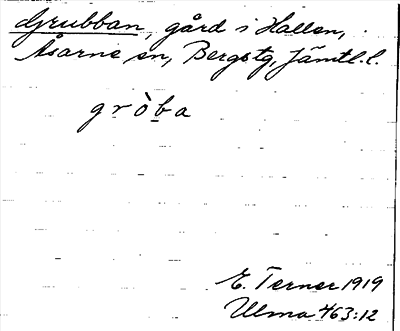 Grubban, gård i Hallen,
Åsarne sn, Bergstg, Jämtl.l.
gròba
E. Terner 1919
Ulma 463:12